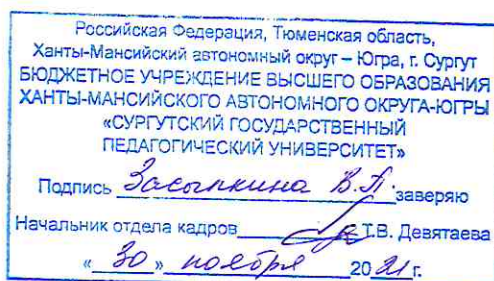 Российская Федерация, Тюменская область,
Ханты-Мансийский автономный округ – Югра, г. Сургут
БЮДЖЕТНОЕ УЧРЕЖДЕНИЕ ВЫСШЕГО ОБРАЗОВАНИЯ
ХАНТЫ-МАНСИЙСКОГО АВТОНОМНОГО ОКРУГА-ЮГРЫ
«СУРГУТСКИЙ ГОСУДАРСТВЕННЫЙ
ПЕДАГОГИЧЕСКИЙ УНИВЕРСИТЕТ»
Подпись Засыпкина В.П. заверяю
Начальник отдела кадров Т.В. Девятаева
« 30 » ноября 2021 г.